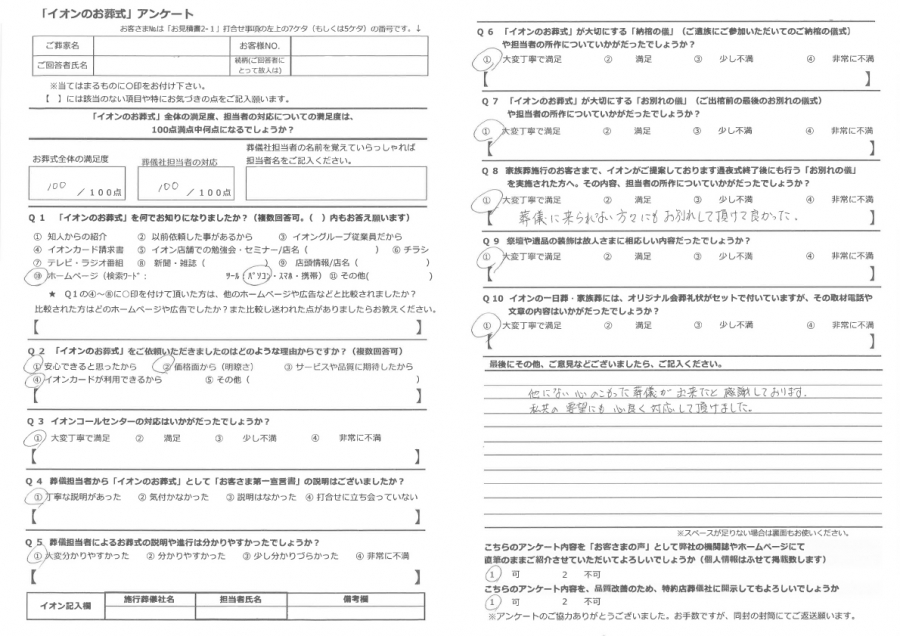 「イオンのお葬式」アンケート
お客さま№は「お見積書2-1」打合せ事項の左上の7ケタ（もしくは5ケタ）の番号です。↓
ご葬家名 お客様NO.
ご回答者氏名 続柄(ご回答者にとって故人は)
※当てはまるものに○印をお付け下さい。
【　】には該当のない項目や特にお気づきの点をご記入願います。
「イオンのお葬式」全体の満足度、担当者の対応についての満足度は、
100点満点中何点になるでしょうか？
お葬式全体の満足度 葬儀社担当者の対応 葬儀社担当者の名前を覚えていらっしゃれば
担当者名をご記入ください。
100 ／100点 100 ／100点
Q１ 「イオンのお葬式」を何でお知りになりましたか？（複数回答可。（　）内もお答え願います）
① 知人からの紹介 ② 以前依頼した事があるから ③ イオングループ従業員だから
④ イオンカード請求書 ⑤ イオン店舗での勉強会・セミナー/店名（　） ⑥ チラシ
⑦ テレビ・ラジオ番組 ⑧ 新聞・雑誌（　） ⑨ 店頭情報/店名（　）
⑩ ホームページ（検索ﾜｰﾄﾞ： ﾂｰﾙ：パソコン・スマホ・携帯） ⑪ その他(　)
★ Q１の④～⑧に○印を付けて頂いた方は、他のホームページや広告などと比較されましたか？
比較された方はどのホームページや広告でしたか？また比較し迷われた点がありましたらお教えください。
【　】
Q２ 「イオンのお葬式」をご依頼いただきましたのはどのような理由からですか？（複数回答可）
①安心できると思ったから ②価格面から（明瞭さ） ③ サービスや品質に期待したから
④イオンカードが利用できるから ⑤ その他（　）
【　】
Q３ イオンコールセンターの対応はいかがだったでしょうか？
① 大変丁寧で満足 ② 満足 ③ 少し不満 ④ 非常に不満
【　】
Q４ 葬儀担当者から「イオンのお葬式」として「お客さま第一宣言書」の説明はございましたか？
①丁寧な説明があった ② 気付かなかった ③ 説明はなかった ④ 打合せに立ち会っていない
【　】
Q５ 葬儀担当者によるお葬式の説明や進行は分かりやすかったでしょうか？
①大変分かりやすかった ② 分かりやすかった ③ 少し分かりづらかった ④ 非常に不満
【　】
イオン記入欄 施行葬儀社名 担当者氏名 備考欄
Q６ 「イオンのお葬式」が大切にする「納棺の儀」（ご遺族にご参加いただいてのご納棺の儀式）
や担当者の所作についていかがだったでしょうか？
①大変丁寧で満足 ② 満足 ③ 少し不満 ④ 非常に不満
【　】
Q７ 「イオンのお葬式」が大切にする「お別れの儀」（ご出棺前の最後のお別れの儀式）
や担当者の所作についていかがだったでしょうか？
①大変丁寧で満足 ② 満足 ③ 少し不満 ④ 非常に不満
【　】
Q８ 家族葬施行のお客さまで、イオンがご提案しております通夜式終了後にも行う「お別れの儀」
を実施された方へ。その内容、担当者の所作についていかがだったでしょうか？
①大変丁寧で満足 ② 満足 ③ 少し不満 ④ 非常に不満
【 葬儀に来られない方々にもお別れして頂けて良かった. 】
Q９ 祭壇や遺品の装飾は故人さまに相応しい内容だったでしょうか？
①大変丁寧で満足 ② 満足 ③ 少し不満 ④ 非常に不満
【　】
Q10 イオンの一日葬・家族葬には、オリジナル会葬礼状がセットで付いていますが、その取材電話や
文章の内容はいかがだったでしょうか？
①大変丁寧で満足 ② 満足 ③ 少し不満 ④ 非常に不満
【　】
最後にその他、ご意見などございましたら、ご記入ください。
他にない心のこもった葬儀が出来たと感謝しております.
私共の希望にも心良く対応して頂けました。
※スペースが足りない場合は裏面もお使いください。
こちらのアンケート内容を「お客さまの声」として弊社の機関誌やホームページにて
直筆のままご紹介させていただいてよろしいでしょうか（個人情報はふせて掲載致します）
1 可 2 不可
こちらのアンケート内容を、品質改善のため、特約店葬儀社に開示してもよろしいでしょうか
1 可 2 不可
※アンケートのご協力ありがとうございました。お手数ですが、同封の封筒にてご返送願います。